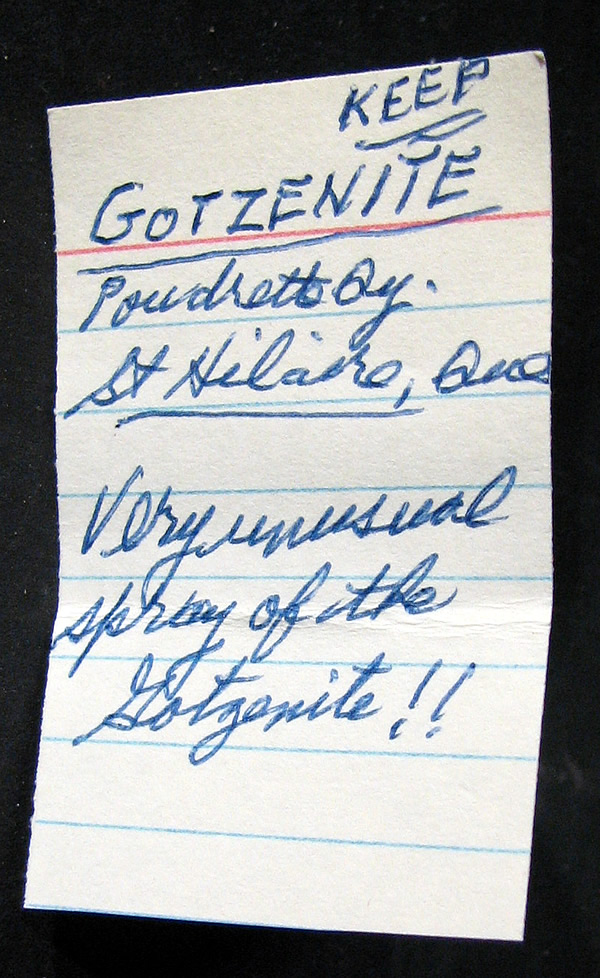 KEEP
GOTZENITE
Poudrette Qy.
St Hilaire, Que
Very unusual
spray of the
Gotzenite!!